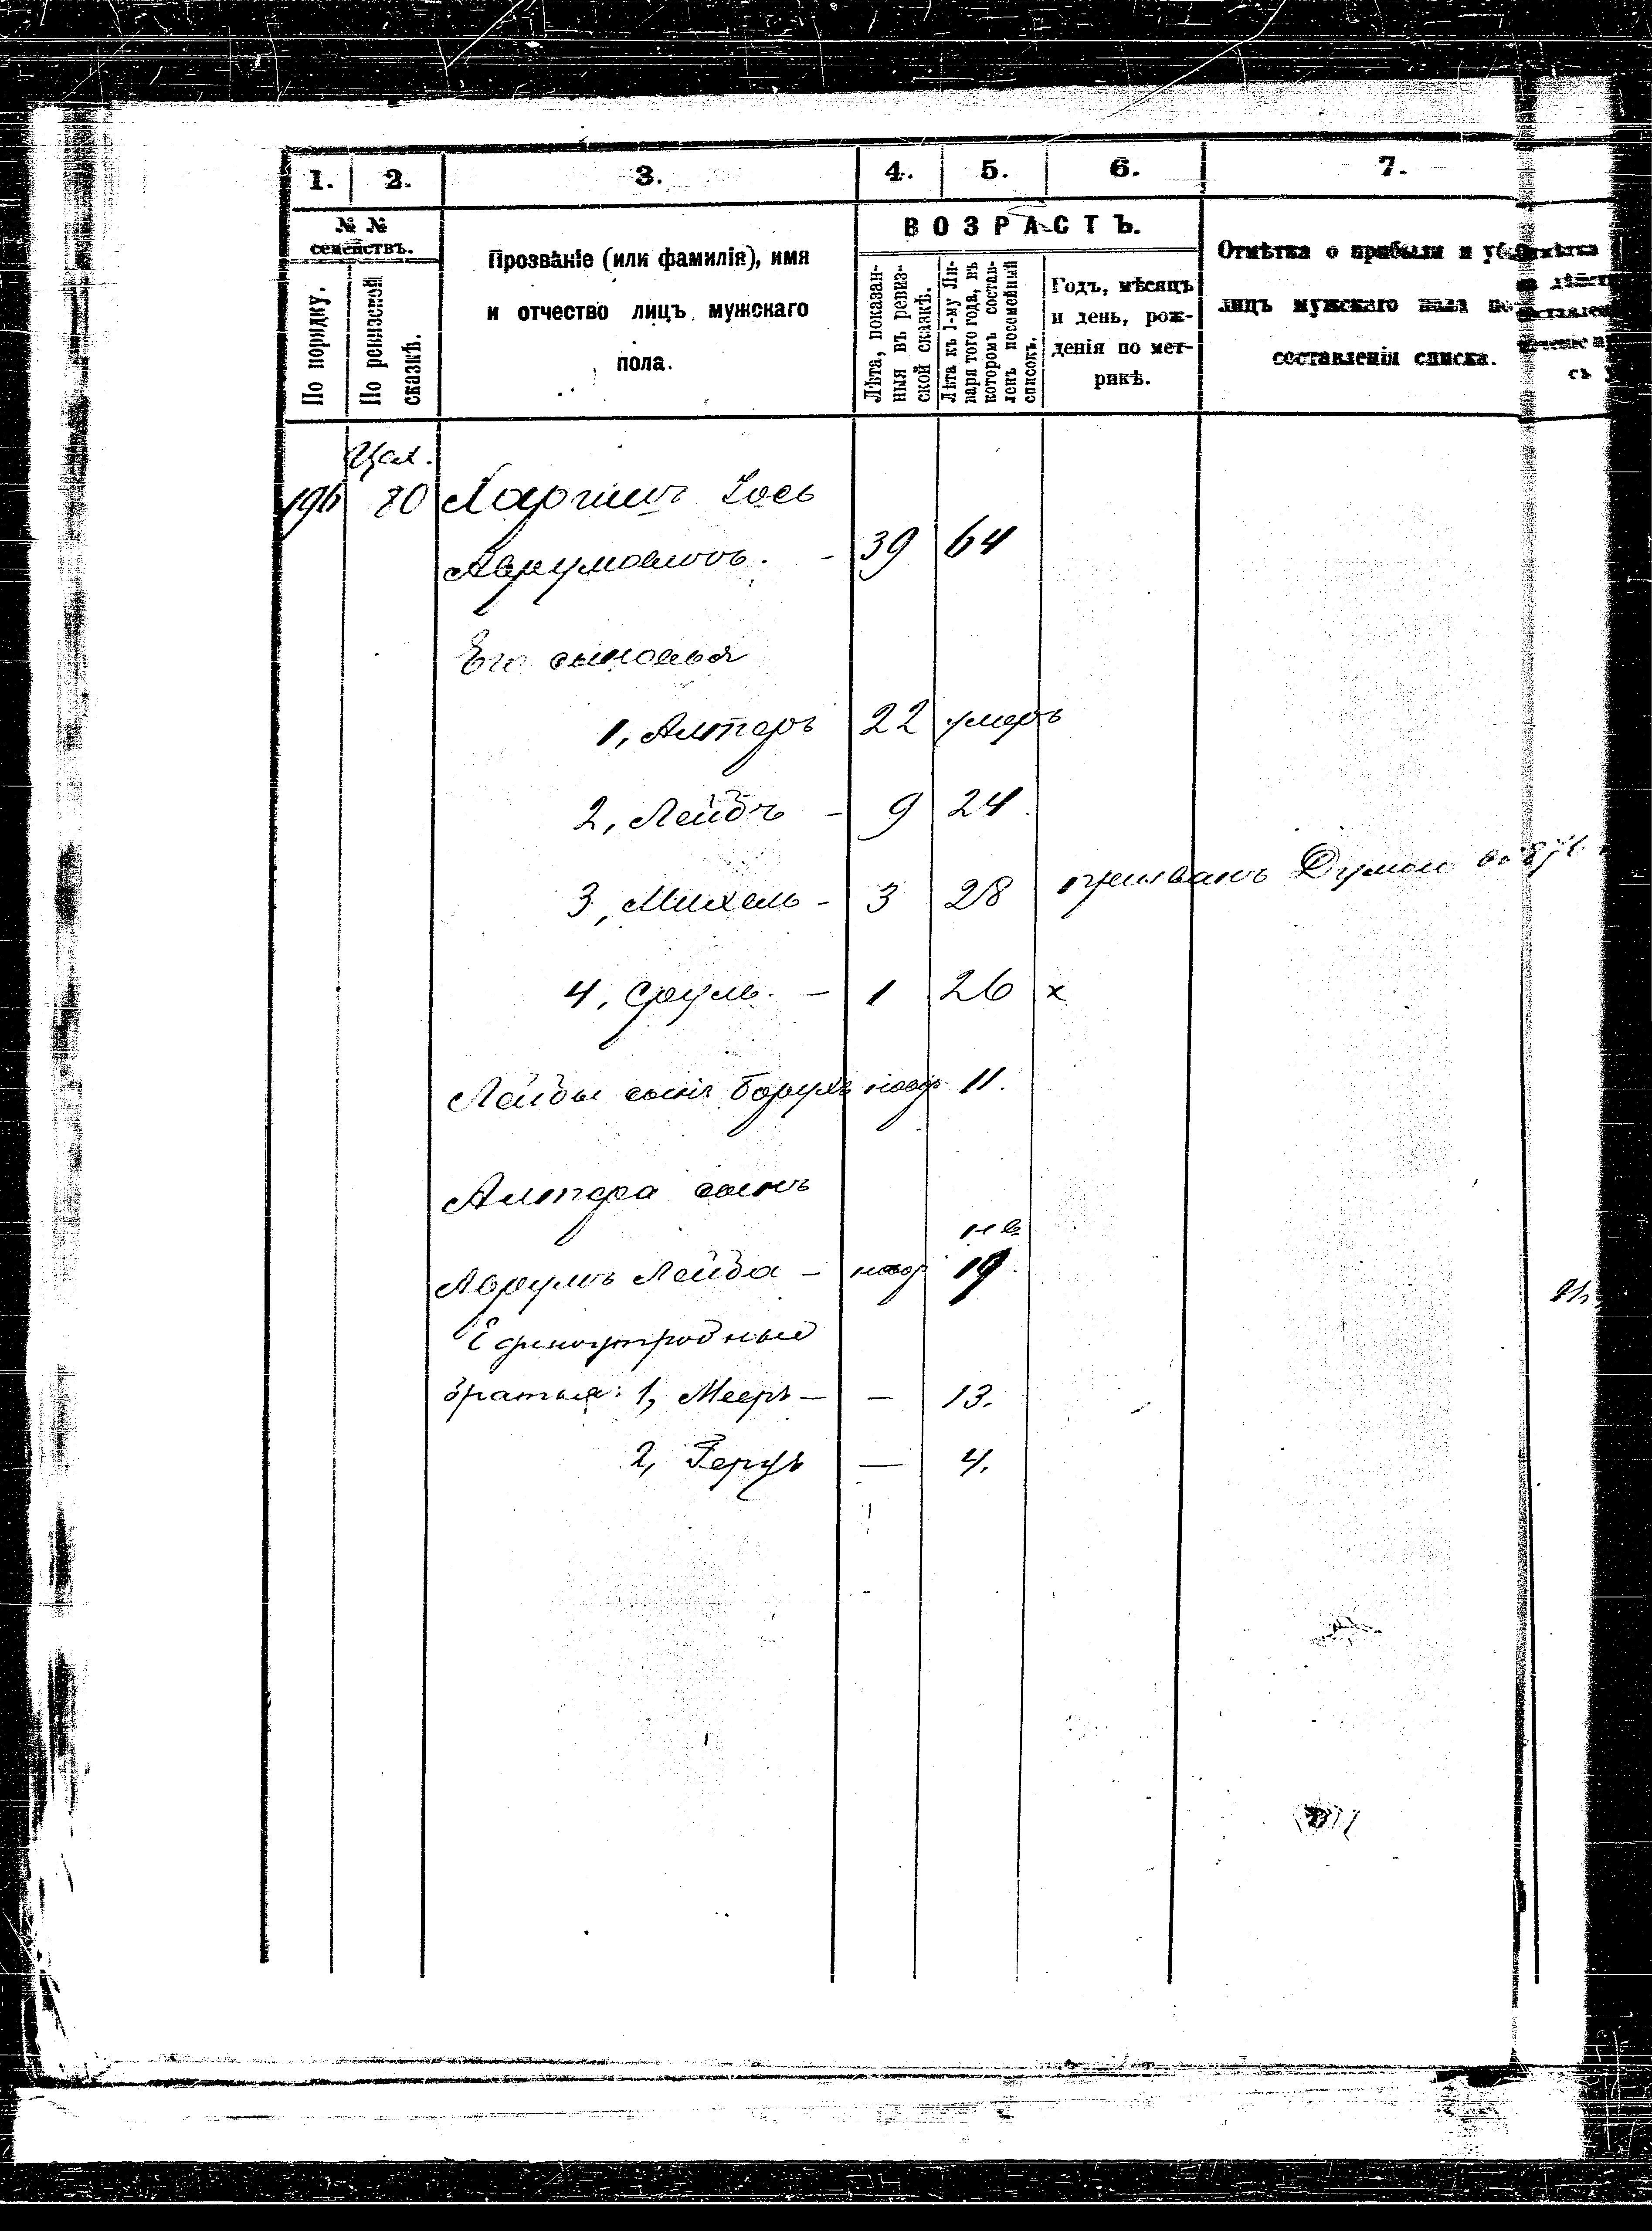 1. 2. 3. 4. 5. 6. 7.
№ №
семействъ.
По порядку.
По ревизской
сказкѣ.
Прозваніе (или фамилія), имя
и отчество лицъ мужскаго
пола.
ВОЗРАСТЪ.
Лѣта, показан-
ныя въ ревиз-
ской сказкѣ.
Лѣта къ 1-му Ян-
варя того года, въ
которомъ состав-
ленъ посемейный
списокъ.
Годъ, мѣсяцъ
и день, рож-
денія по мет-
рикѣ.
Отмѣтка о прибыли и
лицъ мужскаго пола
составленія списка.
196 80 Іось
Аврумовичъ. - 39 64
Его сыновья
1, Алтеръ 22 умеръ
2, Лейбъ - 9 24
3, Михель - 3 28 Думою
4, Сруль. - 1 26 х
Лейбы сынъ Борухъ новор 11.
Алтера сынъ
Аврумъ Лейба - новор 19
Единоутробные
братья: 1, Мееръ - - 13.
2, Герцъ - 4.